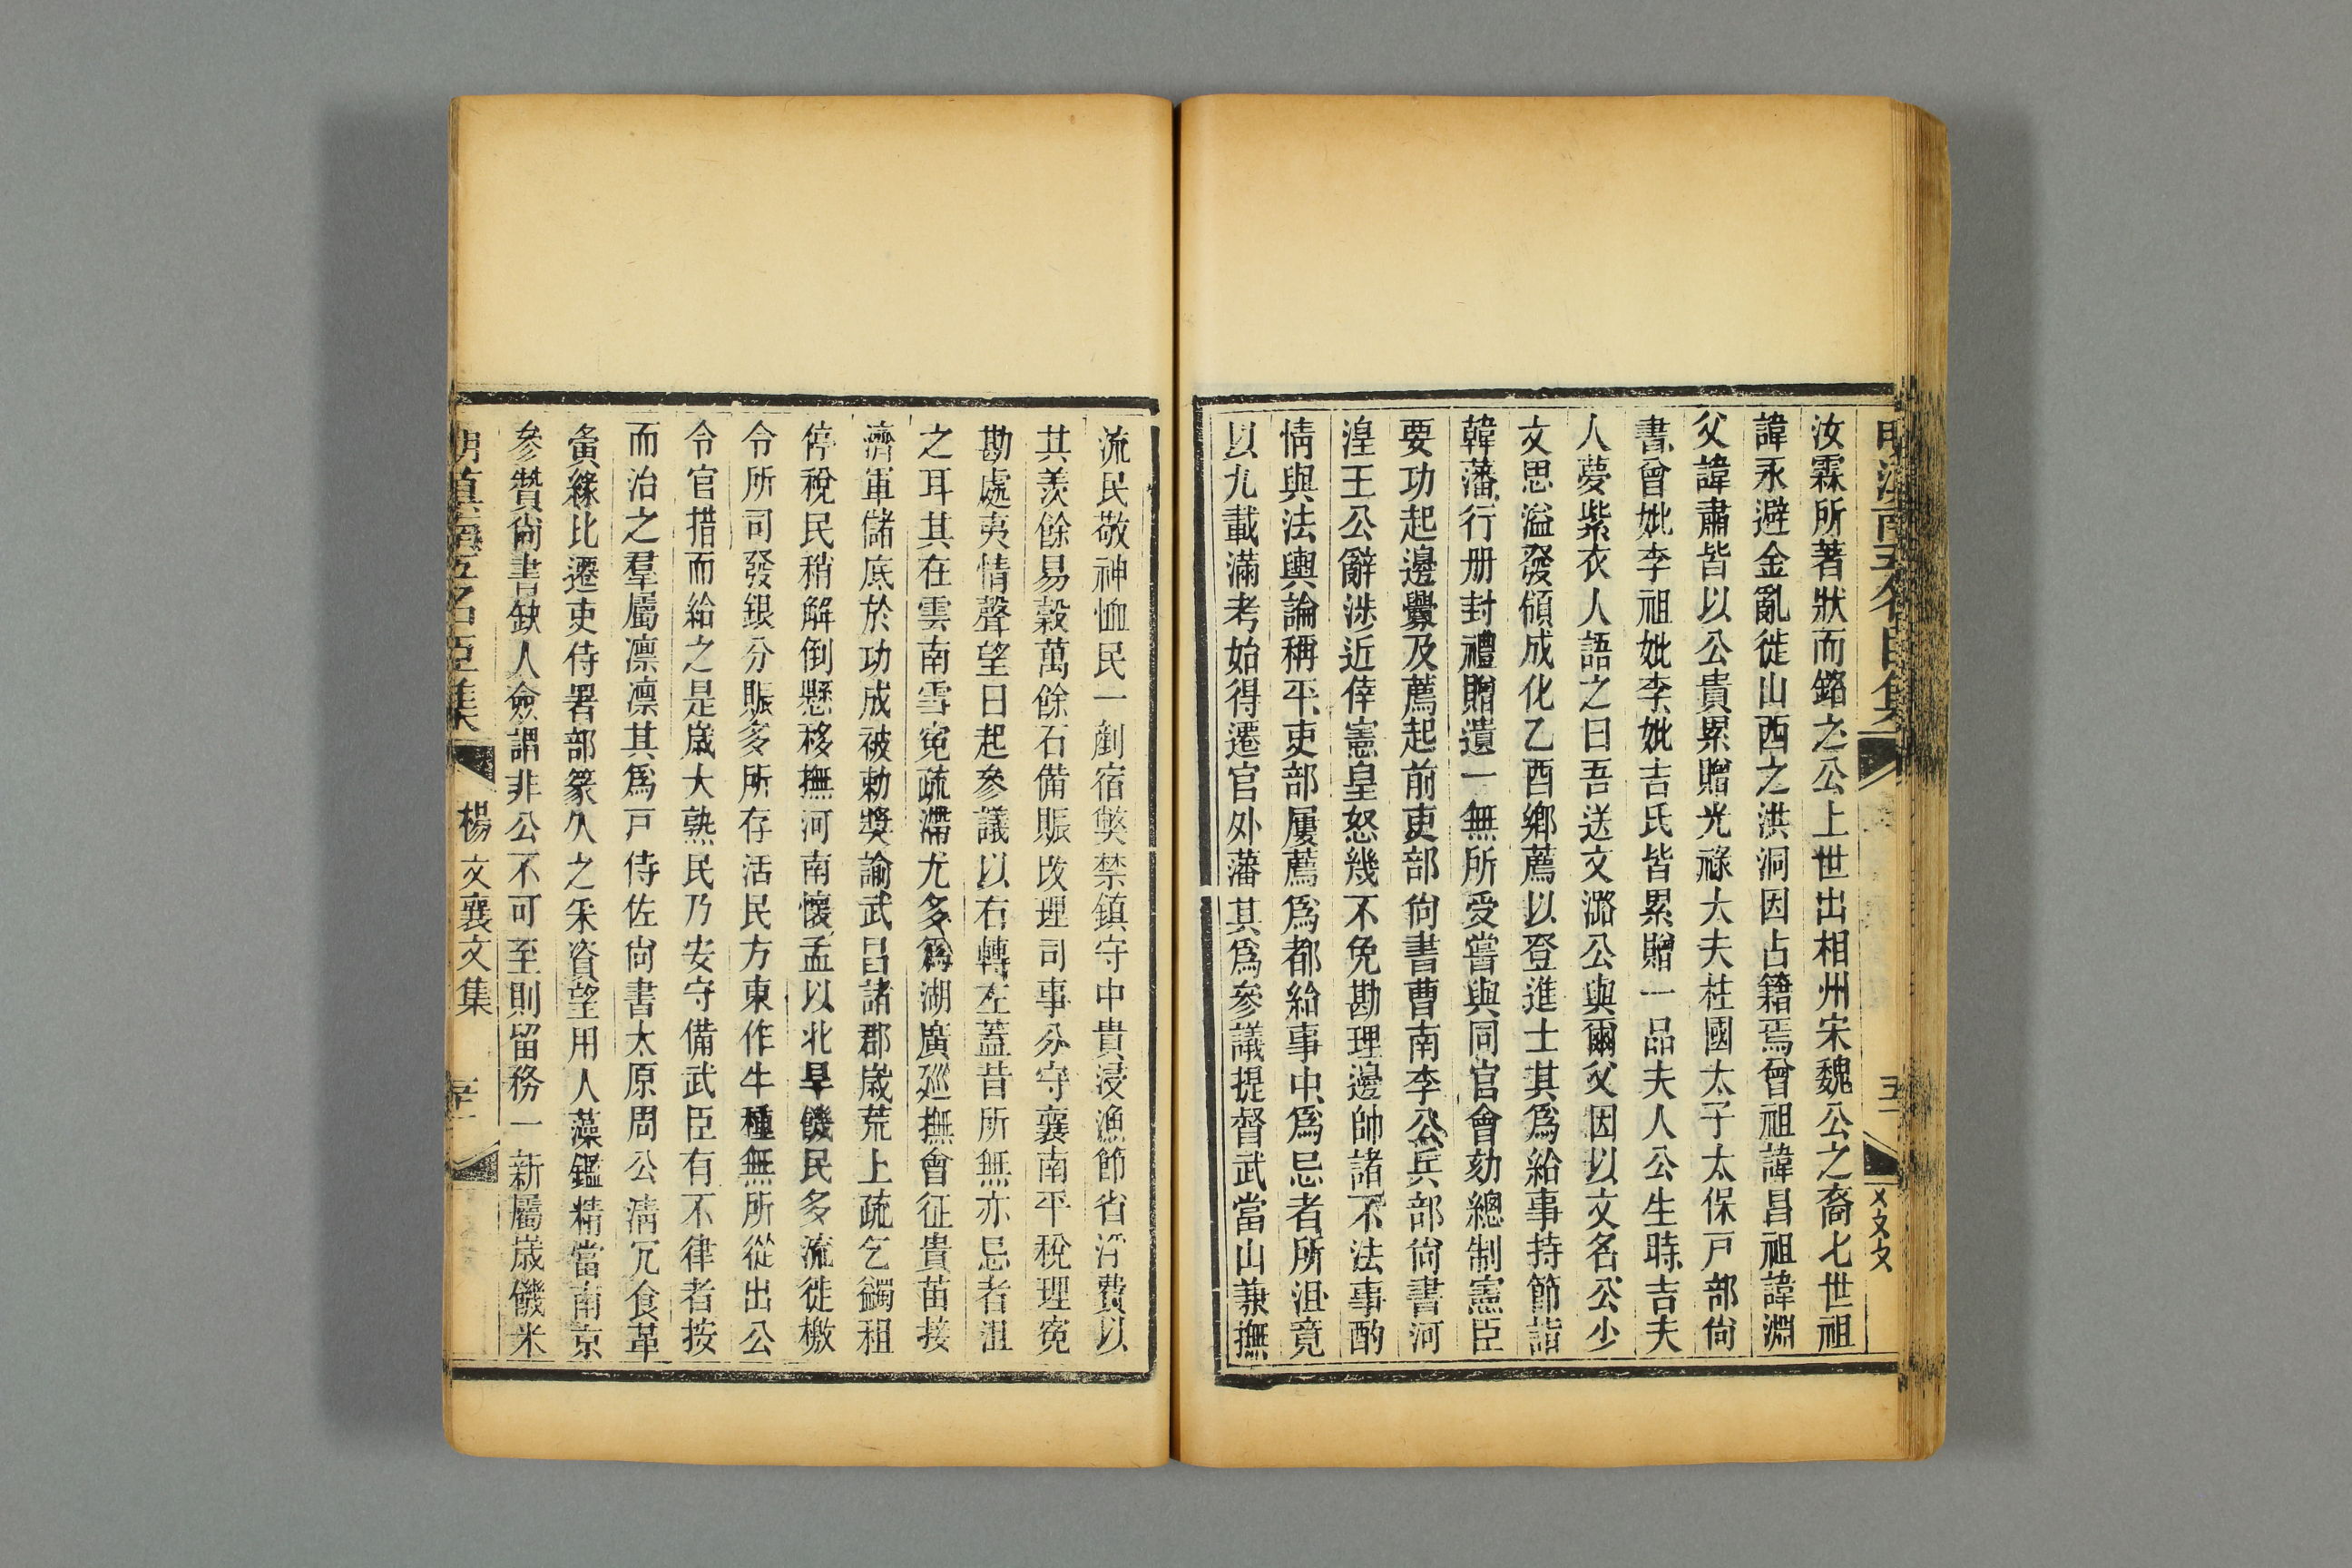 汝霖所著狀而銘之公上世出相州宋魏公之裔七世祖
諱永避金亂徙山西之洪洞因占籍焉曾祖諱昌祖諱淵
父諱肅皆以公貴累贈光祿大夫柱國太子太保戸部尙
書曾妣李祖妣李妣吉氏皆累贈一品夫人公生時吉夫
人夢紫衣人語之曰吾送文潞公與爾父因以文名公少
文思溢發領成化乙酉鄉薦以登進士其爲給事持節詣
韓藩行册封禮贈遺一無所受嘗與同官會劾總制憲臣
要功起邊釁及薦起前吏部尙書曹南李公兵部尙書河
湟王公辭涉近倖憲皇怒幾不免勘理邊帥諸不法事酌
情與法輿論稱平吏部屢薦爲都給事中爲忌者所沮竟
以九載滿考始得遷官外藩其爲參議提督武當山兼撫
流民敬神恤民一剷宿弊禁鎮守中貴浸漁節省浮費以
其羨餘易穀萬餘石備賑改理司事分守襄南平稅理寃
勘處夷情聲望日起參議以右轉左蓋昔所無亦忌者沮
之耳其在雲南雪寃疏滯尤多爲湖廣廵撫會征貴苗接
濟軍儲底於功成被勅獎諭武昌諸郡歲荒上疏乞蠲租
停稅民稍解倒懸移撫河南懷孟以北旱饑民多流徙檄
令所司發銀分賑多所存活民方東作牛種無所從出公
令官措而給之是歲大熟民乃安守備武臣有不律者按
而治之羣屬凛凛其爲戸侍佐尙書太原周公淸冗食革
夤緣比遷吏侍署部篆久之釆資望用人藻鑑精當南京
參贊尙書缺人僉謂非公不可至則留務一新屬歲饑米
明滇南五名臣集
楊文襄文集